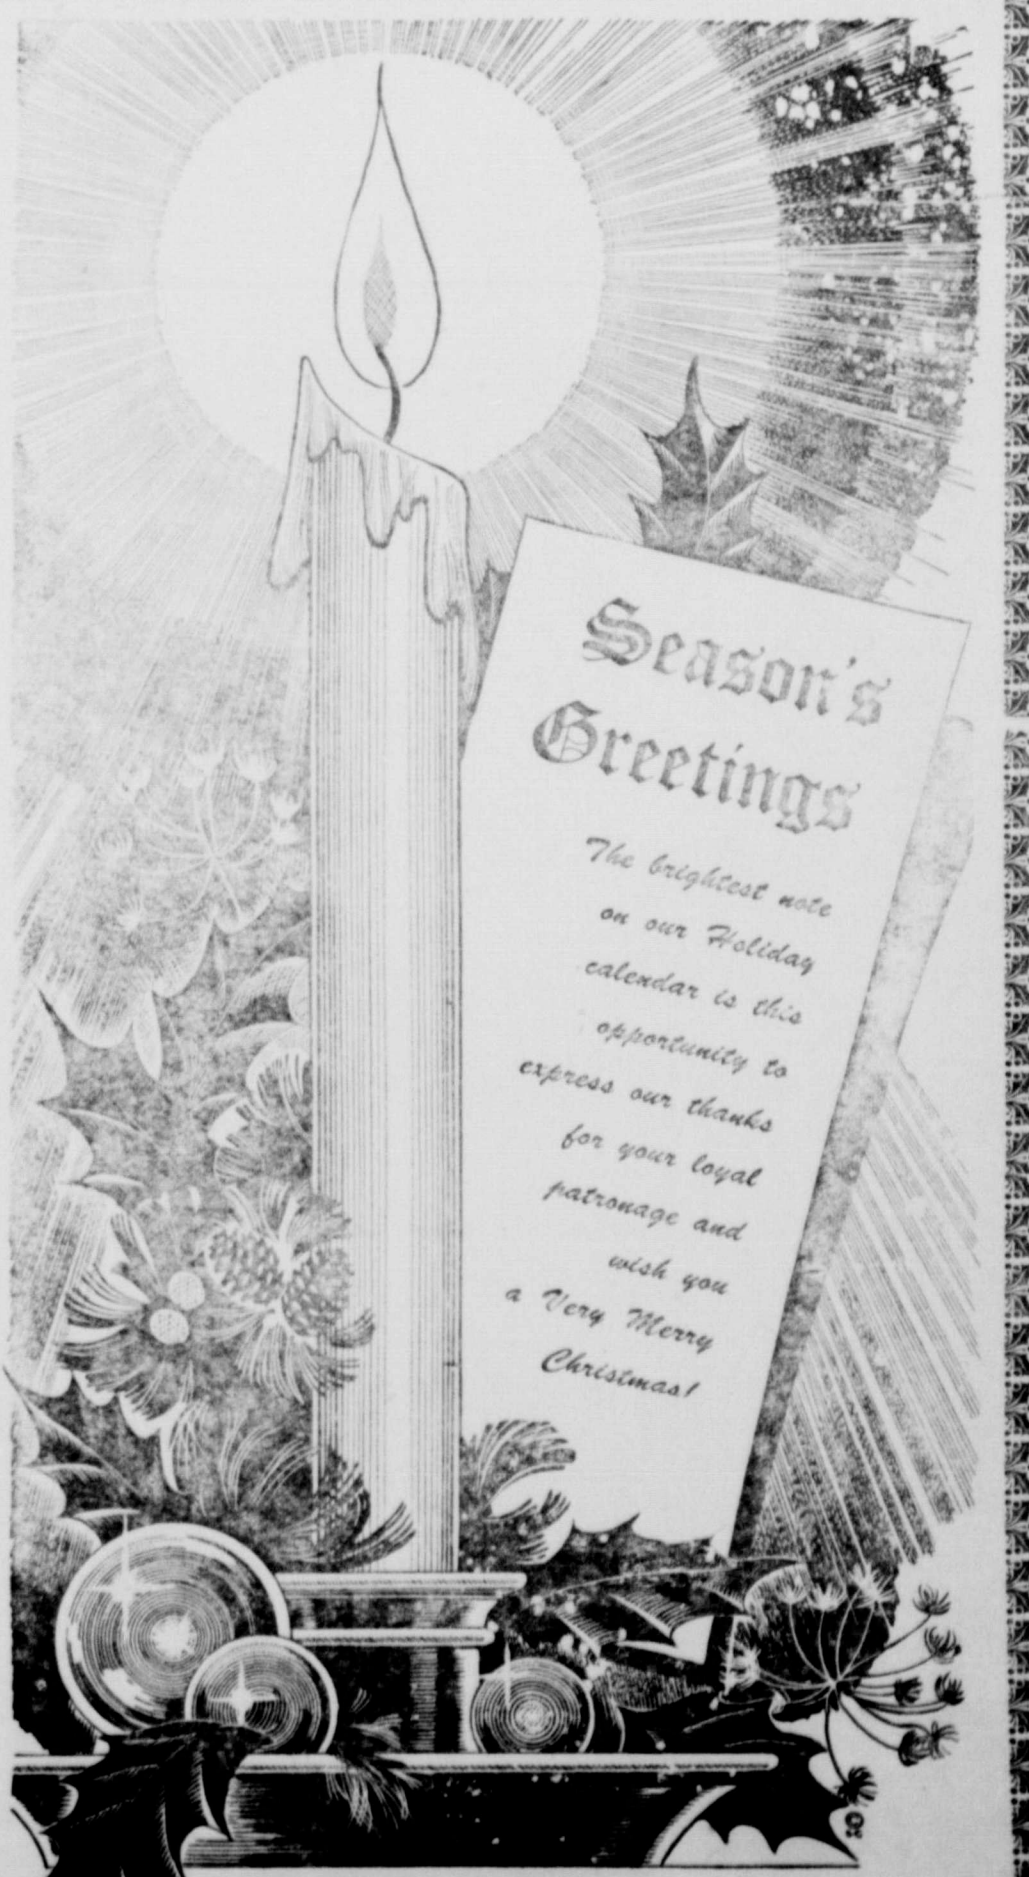 Season's
Greetings
The brightest note
on our Holiday
calendar is this
opportunity to
express our thanks
for your loyal
patronage and
wish you
a Very Merry
Christmas!